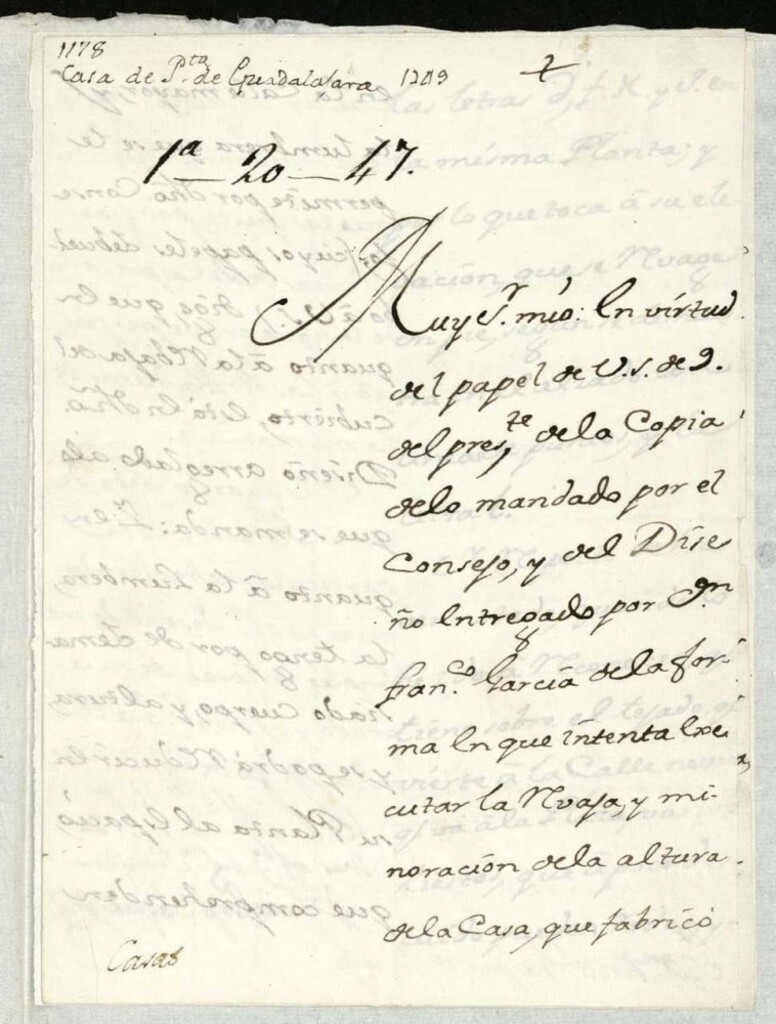 1178
Casa de P.ta de Guadalaxara 1209
1.a — 20 — 47.
Muy S.r mio: En virtud
del papel de V.S. de 9.
del pres.te de la Copia
delo mandado por el
Consejo, y del Dise
ño Entregado por D.n
fran.co Garcia de la for-
ma En que intenta Exe-
cutar la Rvaja, y mi-
noración de la altura
de la Casa, que fabricó
Casas